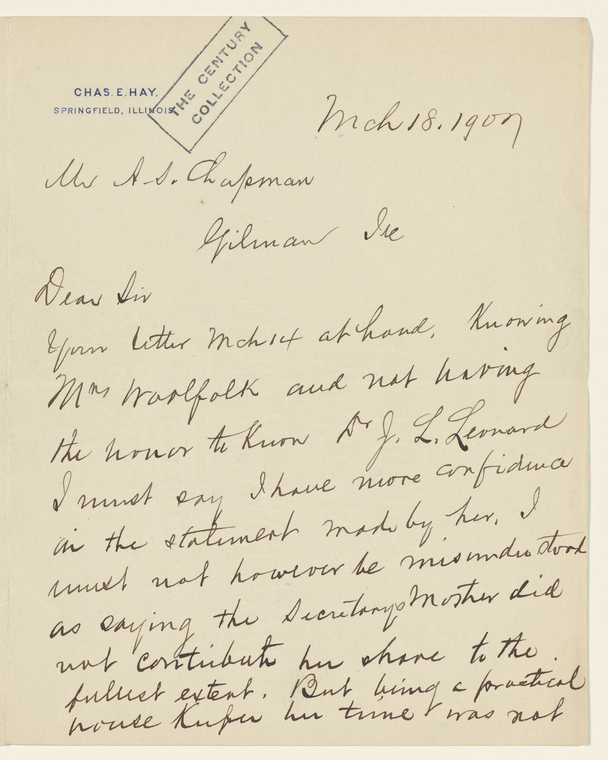 CHAS. E. HAY,
SPRINGFIELD, ILLINOIS.
THE CENTURY
COLLECTION
Mch 18. 1907
Mr A. S. Chapman
Gilman Ill
Dear Sir
Your letter Mch 14 at hand. Knowing
Mrs Woolfolk and not having
the honor to know Dr J. L. Leonard
I must say I have more confidence
in the statement made by her. I
must not however be misunderstood
as saying the Secretarys Mother did
not contribute her share to the
fullest extent. But being a practical
house keeper her time was not